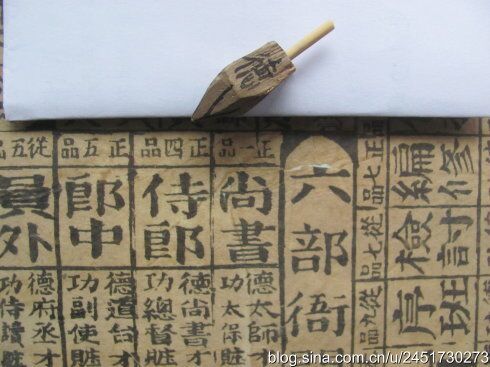 德
編修
正七品
檢討
從七品
序班
從九品
六部衙
正一品
尚書
德太師才
功太保賍
正四品
侍郎
德尚書才
功總督賍
正五品
郎中
德道台才
功副使賍
從五品
員外
德府丞才
功侍讀賍
blog.sina.com.cn/u/2451730273